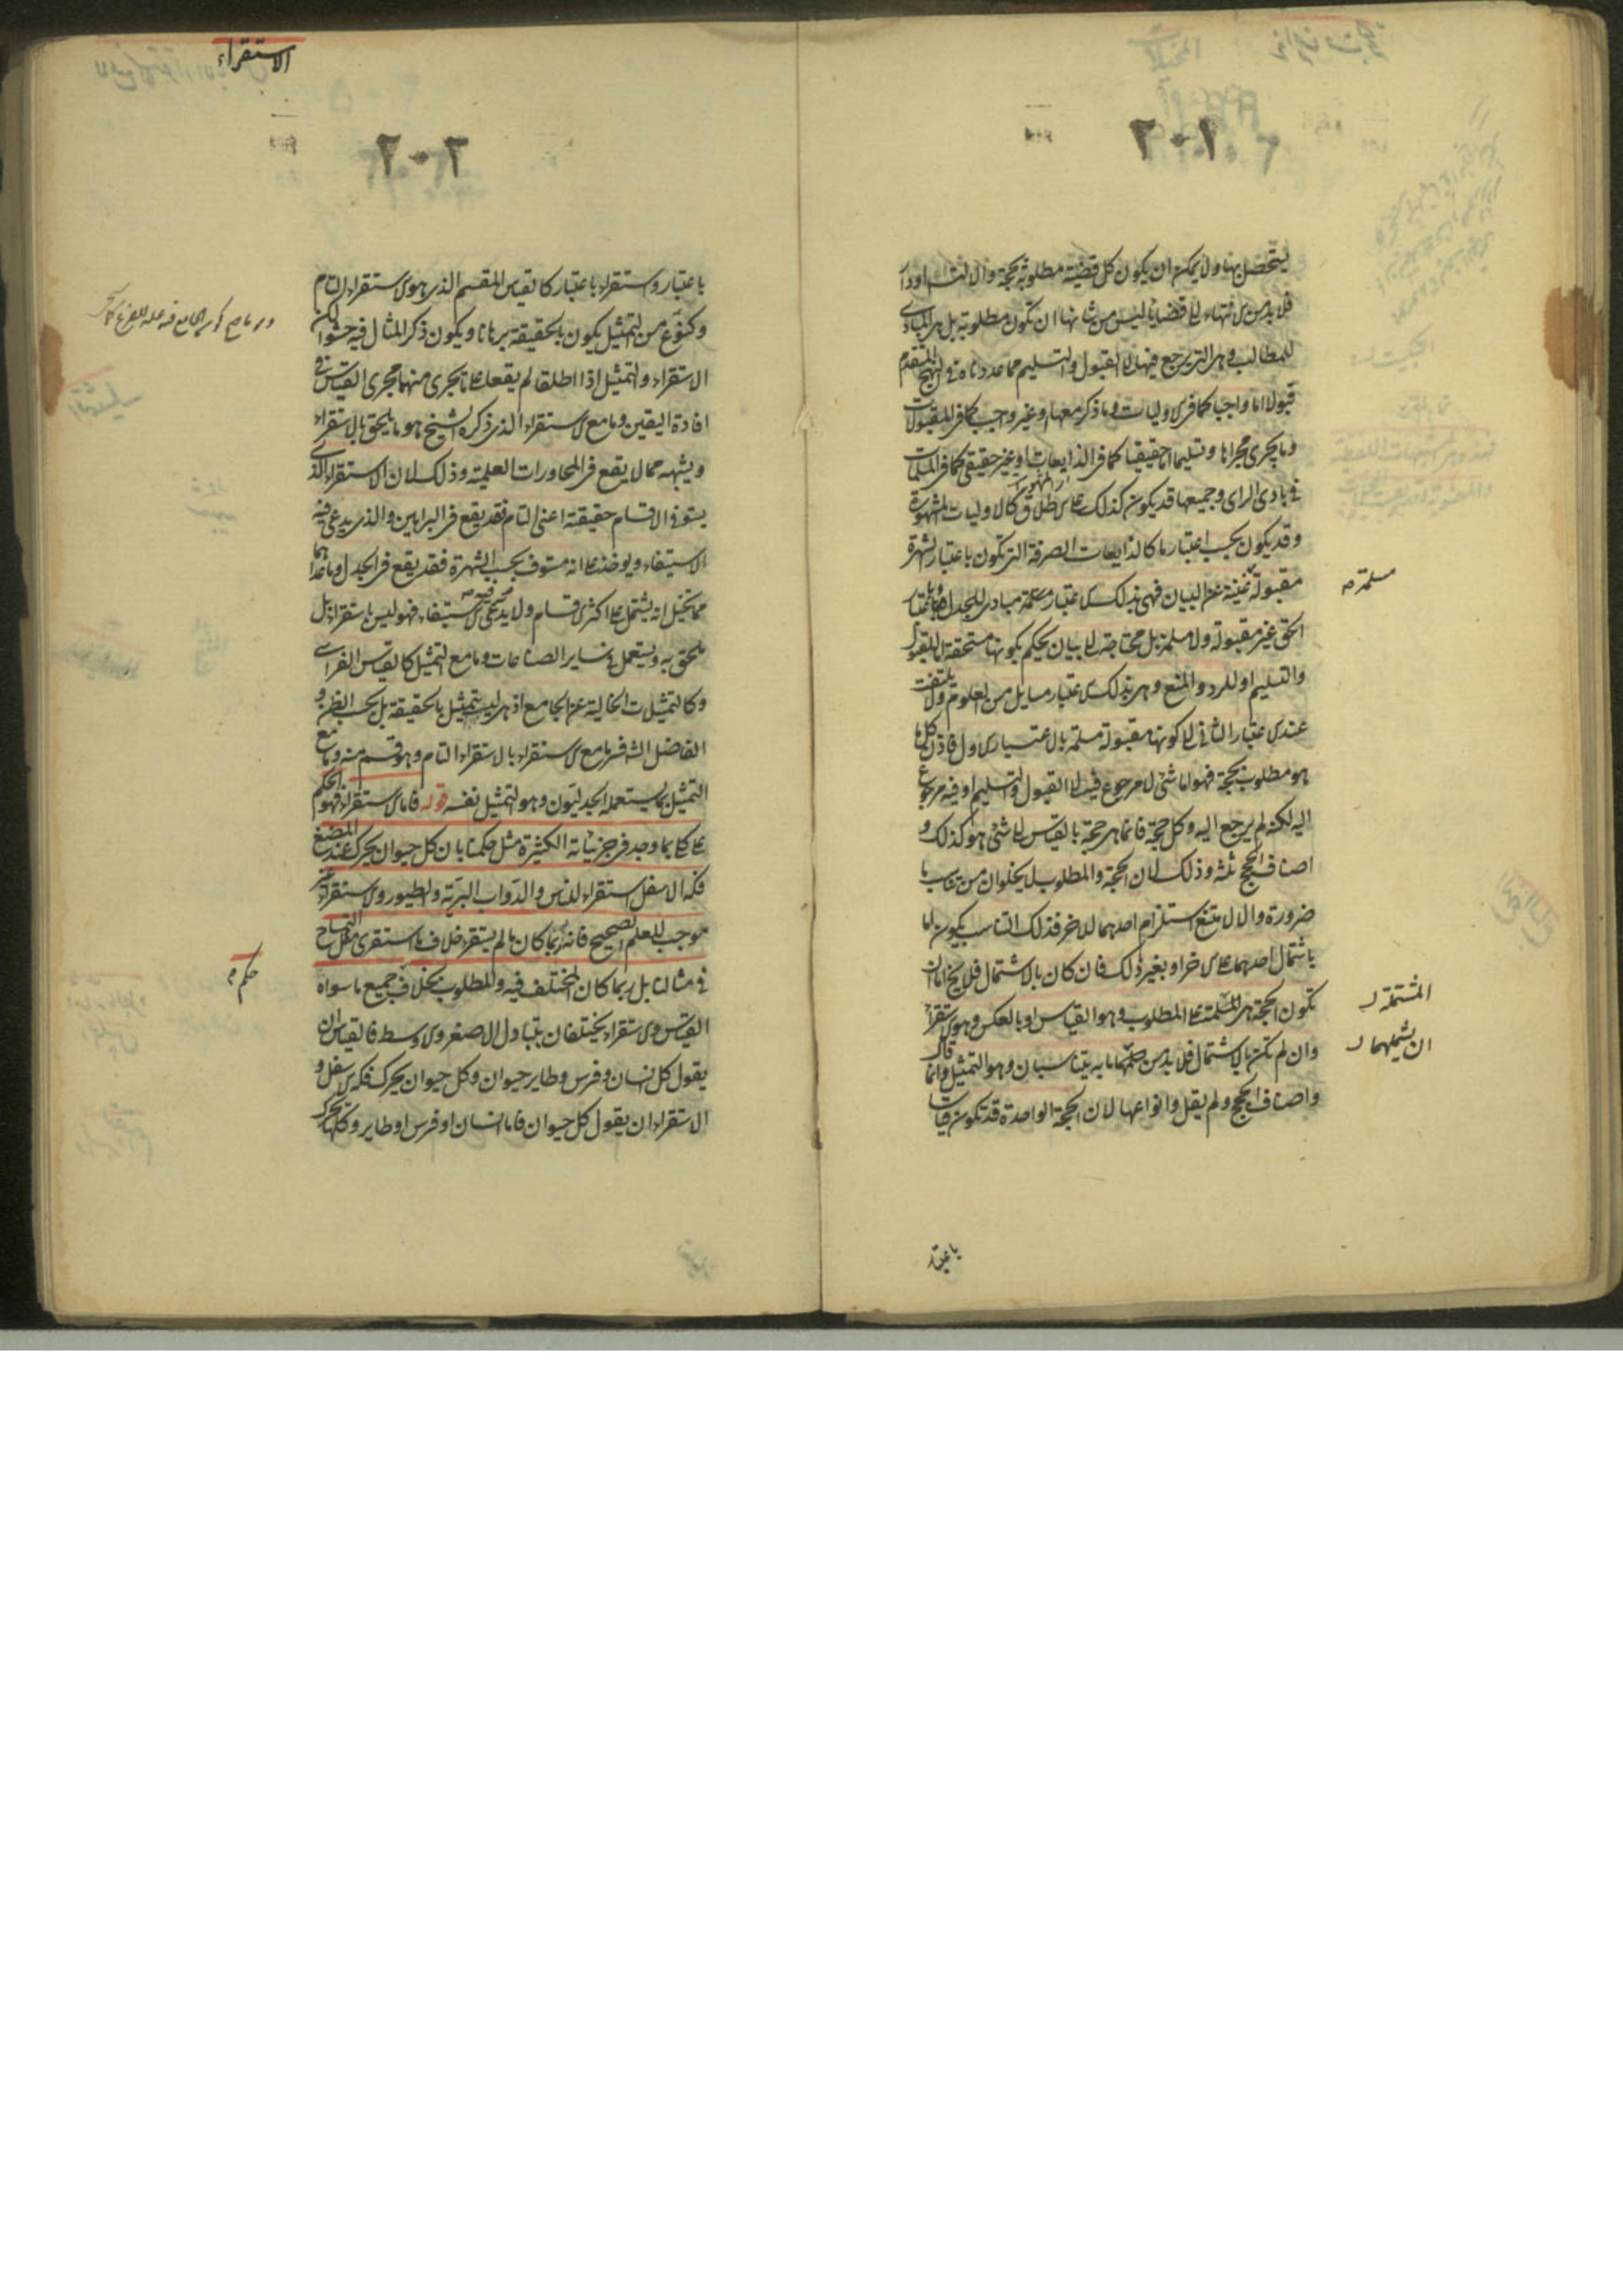 ٢٠١
يتحصل بها ولا يمكن ان يكون كل قضية مطلوبة بحجة والا لتسلسل او دار
فلا بد من الانتهاء الى قضايا ليس من شانها ان تكون مطلوبة بل هى المبادى
للمطالب وهى التى يرجع فيها الى القبول والتسليم مما عددناه فى النهج المتقدم
قبولا اما واجبا كما فى الاوليات وما ذكر معها او غير واجب كما فى المقبولات
وما يجرى مجراها وتسليما اما حقيقيا كما فى الذايعات او غير حقيقى كما فى المسلمات
فى بادى الراى وجميعها قد يكون كذلك على الاطلاق كالاوليات المشهورة
وقد يكون بحسب اعتبار ما كالذايعات الصرفة التى تكون باعتبار الشهرة
مقبولة غنية عن البيان فهى بذلك الاعتبار مبادى للجدل وباعتبار
مسلمة صح
الحق غير مقبولة ولا مسلمة بل محتاجة الى بيان يحكم بكونها مستحقة للقبول
والتسليم او للرد والمنع وهى بذلك الاعتبار مسايل من العلوم ولا يلتفت
عند الاعتبار الثانى الى كونها مقبولة مسلمة بالاعتبار الاول فاذن كل ما
هو مطلوب بحجة فهو اما شئ لا مرجوع فيه الى القبول والتسليم او فيه مرجوع
اليه لكنه لم يرجع اليه وكل حجة فانما هى حجة بالقياس الى شئ هو كذلك و
اصناف الحجج ثلثة وذلك لان الحجة والمطلوب لا يخلوان من تناسب ما
ضرورة والا لامتنع استلزام احدهما للاخر فذلك التناسب يكون اما
باشتمال احدهما على الاخر او بغير ذلك فان كان بالاشتمال فلا يخ اما ان
تكون الحجة هى المشتملة على المطلوب وهو القياس او بالعكس وهو الاستقراء
المشتملة
وان لم تكن بالاشتمال فلا بد من ما به يتناسبان وهو التمثيل وانما قال
ان يشملهما
واصناف الحجج ولم يقل وانواعها لان الحجة الواحدة قد تكون قياسا
باعتبار
الاستقراء
٢٠٢
باعتبار واستقراء باعتبار كالقياس المقسم الذى هو الاستقراء التام
وكنوع من التمثيل يكون بالحقيقة برهانا ويكون ذكر المثال فيه حشوا لكن
الاستقراء والتمثيل اذا اطلقا لم يقعا على ما يجرى منهما مجرى القياس فى
افادة اليقين وما مع الاستقراء الذى ذكره الشيخ هو ما يلحق بالاستقراء
ويشبهه مما لا يقع فى المحاورات العلمية وذلك لان الاستقراء الذى
يستوفى الاقسام حقيقة اعنى التام قد يقع فى البراهين والذى يدعى فيه
الاستيفاء ويوخذ على انه مستوف بحسب الشهرة فقد يقع فى الجدل وما عداهما
مما يخيل انه يشتمل على اكثر الاقسام ولا يدعى فيه الاستيفاء فهو ليس باستقراء بل
ملحق به ويستعمل فى ساير الصناعات وما مع التمثيل كالقياس الفراسى
وكالتمثيلات الخالية عن الجامع اذ هى ليست بتمثيل بالحقيقة بل بحسب الظن و
الفاضل الش فسر ما مع الاستقراء بالاستقراء التام وهو قسم منه وما مع
التمثيل بما يستعمله الجدليون وهو التمثيل نفسه قوله فاما الاستقراء فهو الحكم
على كلى بما وجد فى جزئياته الكثيرة مثل حكمنا بان كل حيوان يحرك عند المضغ
فكه الاسفل استقراء للناس والدواب البرية والطيور والاستقراء غير
موجب للعلم الصحيح فانه ربما كان ما لم يستقر خلاف ما استقرى مثل التمساح
حكم صح
فى مثالنا بل ربما كان المختلف فيه والمطلوب بخلاف جميع ما سواه
القياس والاستقراء يختلفان بتبادل الاصغر والاوسط فالقياس ان
يقول كل انسان وفرس وطاير حيوان وكل حيوان يحرك فكه الاسفل و
الاستقراء ان يقول كل حيوان فاما انسان او فرس او طاير وكلها يحرك